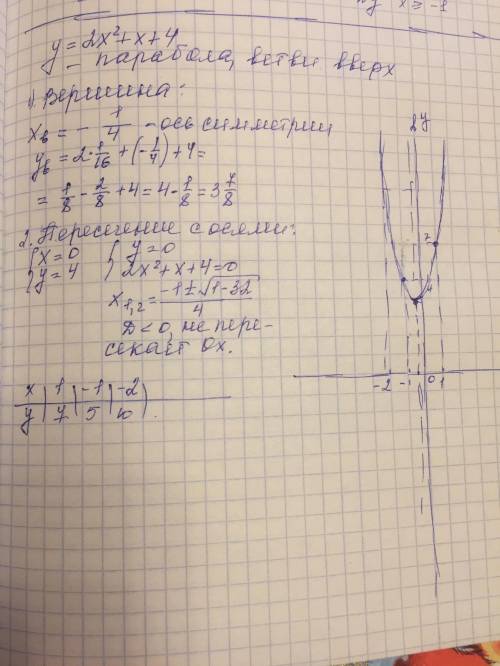 x ≥ -1
y = 2x²+x+4
- парабола, ветви вверх
1. Вершина:
xв = - 1/4 - ось симметрии
yв = 2·1/16 + (-1/4) + 4 =
= 1/8 - 2/8 + 4 = 4 - 1/8 = 3 7/8
2. Пересечение с осями:
{ x = 0 { y = 0
{ y = 4 { 2x²+x+4=0
x1,2 = (-1 ± √(1-32))/4
D < 0, не пере-
секает Ox.
x | 1 | -1 | -2
y | 7 | 5 | 10
y
7
4
-2 -1 0 1